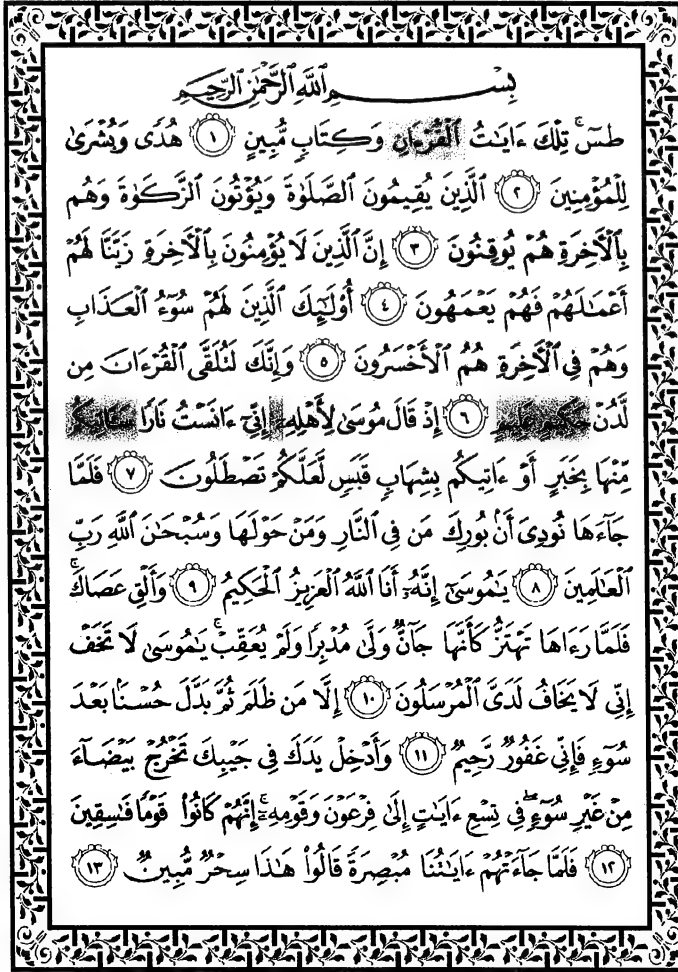 بِسْمِ ٱللَّهِ ٱلرَّحْمَٰنِ ٱلرَّحِيمِ
طسٓ ۚ تِلْكَ ءَايَٰتُ ٱلْقُرْءَانِ وَكِتَابٍ مُّبِينٍ ١ هُدًى وَبُشْرَىٰ
لِلْمُؤْمِنِينَ ٢ ٱلَّذِينَ يُقِيمُونَ ٱلصَّلَوٰةَ وَيُؤْتُونَ ٱلزَّكَوٰةَ وَهُم
بِٱلْأَخِرَةِ هُمْ يُوقِنُونَ ٣ إِنَّ ٱلَّذِينَ لَا يُؤْمِنُونَ بِٱلْأَخِرَةِ زَيَّنَّا لَهُمْ
أَعْمَٰلَهُمْ فَهُمْ يَعْمَهُونَ ٤ أُوْلَٰٓئِكَ ٱلَّذِينَ لَهُمْ سُوٓءُ ٱلْعَذَابِ
وَهُمْ فِى ٱلْأَخِرَةِ هُمُ ٱلْأَخْسَرُونَ ٥ وَإِنَّكَ لَتُلَقَّى ٱلْقُرْءَانَ مِن
لَّدُنْ حَكِيمٍ عَلِيمٍ ٦ إِذْ قَالَ مُوسَىٰ لِأَهْلِهِۦٓ إِنِّىٓ ءَانَسْتُ نَارًا سَـَٔاتِيكُم
مِّنْهَا بِخَبَرٍ أَوْ ءَاتِيكُم بِشِهَابٍ قَبَسٍ لَّعَلَّكُمْ تَصْطَلُونَ ٧ فَلَمَّا
جَآءَهَا نُودِىَ أَنۢ بُورِكَ مَن فِى ٱلنَّارِ وَمَنْ حَوْلَهَا وَسُبْحَٰنَ ٱللَّهِ رَبِّ
ٱلْعَٰلَمِينَ ٨ يَٰمُوسَىٰٓ إِنَّهُۥٓ أَنَا ٱللَّهُ ٱلْعَزِيزُ ٱلْحَكِيمُ ٩ وَأَلْقِ عَصَاكَ ۚ
فَلَمَّا رَءَاهَا تَهْتَزُّ كَأَنَّهَا جَآنٌّ وَلَّىٰ مُدْبِرًا وَلَمْ يُعَقِّبْ ۚ يَٰمُوسَىٰ لَا تَخَفْ
إِنِّى لَا يَخَافُ لَدَىَّ ٱلْمُرْسَلُونَ ١٠ إِلَّا مَن ظَلَمَ ثُمَّ بَدَّلَ حُسْنًۢا بَعْدَ
سُوٓءٍ فَإِنِّى غَفُورٌ رَّحِيمٌ ١١ وَأَدْخِلْ يَدَكَ فِى جَيْبِكَ تَخْرُجْ بَيْضَآءَ
مِنْ غَيْرِ سُوٓءٍ ۖ فِى تِسْعِ ءَايَٰتٍ إِلَىٰ فِرْعَوْنَ وَقَوْمِهِۦٓ ۚ إِنَّهُمْ كَانُوا۟ قَوْمًا فَٰسِقِينَ
١٢ فَلَمَّا جَآءَتْهُمْ ءَايَٰتُنَا مُبْصِرَةً قَالُوا۟ هَٰذَا سِحْرٌ مُّبِينٌ ١٣